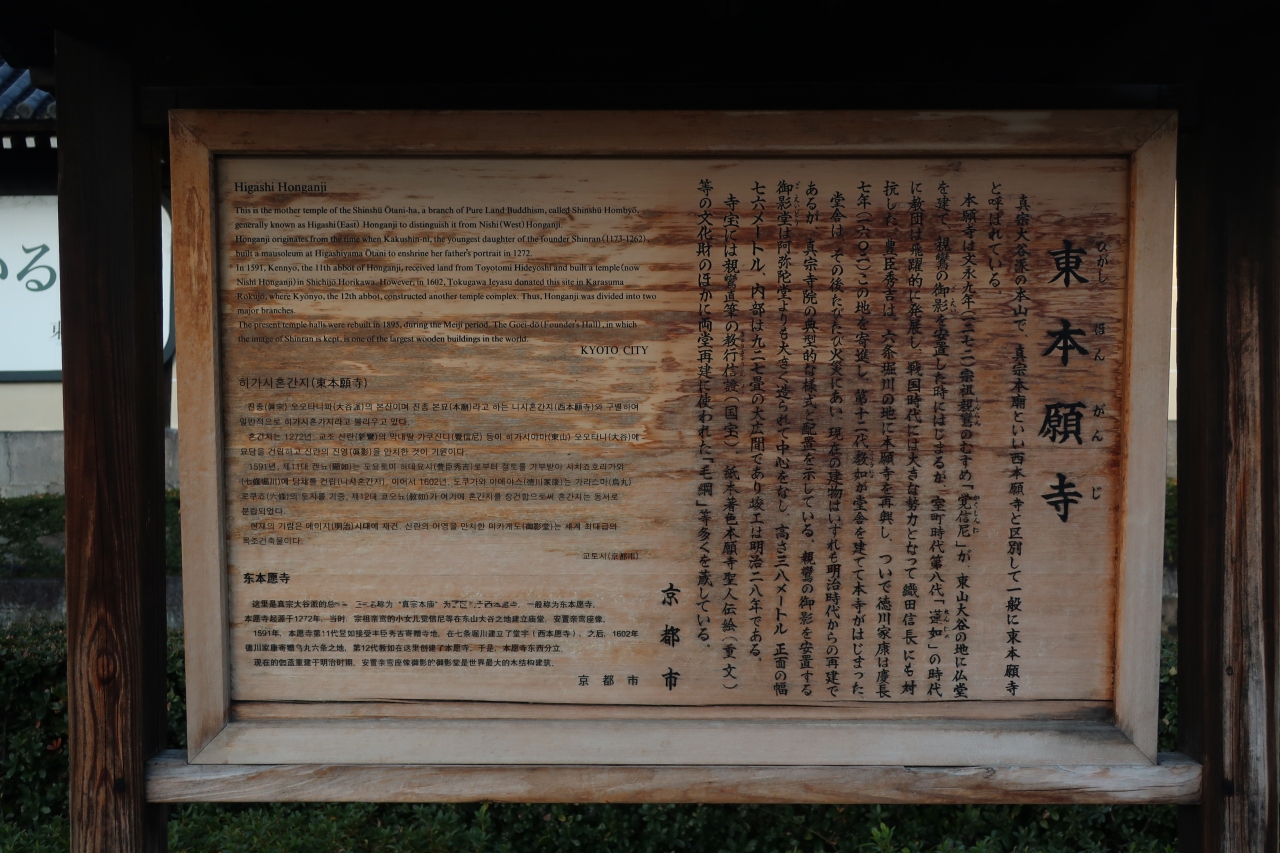 Higashi Honganji
This is the mother temple of the Shinshū Ōtani-ha, a branch of Pure Land Buddhism, called Shinshū Hombyō,
generally known as Higashi(East) Honganji to distinguish it from Nishi(West)Honganji.
Honganji originates from the time when Kakushin-ni, the youngest daughter of the founder Shinran(1173-1262),
built a mausoleum at Higashiyama Ōtani to enshrine her father's portrait in 1272.
In 1591, Kennyo, the 11th abbot of Honganji, received land from Toyotomi Hideyoshi and built a temple(now
Nishi Honganji)in Shichijō Horikawa. However, in 1602, Tokugawa Ieyasu donated this site in Karasuma
Rokujō, where Kyōnyo, the 12th abbot, constructed another temple complex. Thus, Honganji was divided into two
major branches.
The present temple halls were rebuilt in 1895, during the Meiji period. The Goei-dō(Founder's Hall), in which
the image of Shinran is kept, is one of the largest wooden buildings in the world.
KYOTO CITY
히가시혼간지(東本願寺)
진종(眞宗) 오오타니파(大谷派)의 본산이며 진종 본묘(本廟)라고 하는 니시혼간지(西本願寺)와 구별하여
일반적으로 히가시혼가지라고 불리우고 있다.
혼간지는 1272년, 교조 신란(新鸞)의 막내딸 가쿠신니(覺信尼) 등이 히가시야마(東山) 오오타니(大谷)에
묘당을 건립하고 신란의 진영(眞影)을 안치한 것이 기원이다.
1591년, 제11대 켄뇨(顯如)는 도요토미 히데요시(豊臣秀吉)로부터 절토를 기부받아 시치죠호리가와
(七條堀川)에 당채를 건립(니시혼간지), 이어서 1602년, 도쿠가와 이에야스(德川家康)는 가라스마(烏丸)
로쿠죠(六條)의 토지를 기증, 제12대 쿄오뇨(敎如)가 여기에 혼간지를 창건함으로써 혼간지는 동서로
분립되었다.
현재의 가람은 메이지(明治)시대에 재건, 신란의 어영을 안치한 미카게도(御影堂)는 세계 최대급의
목조건축물이다.
교토시(京都市)
东本愿寺
这里是真宗大谷派的总 称为“真宗本庙” 一般称为东本愿寺。
本愿寺起源于1272年，当时，宗祖亲鸾的小女儿觉信尼等在东山大谷之地建立庙堂，安置亲鸾座像。
1591年，本愿寺第11代显如接受丰臣秀吉寄赠寺地，在七条堀川建立了堂宇（西本愿寺）。之后，1602年
德川家康寄赠乌丸六条之地，第12代教如在这里创建了本愿寺，于是，本愿寺东西分立。
现在的伽蓝重建于明治时期，安置亲鸾座像御影的御影堂是世界最大的木结构建筑。
京都市
東本願寺
ひがし ほん がん じ
真宗大谷派の本山で、真宗本廟といい西本願寺と区別して一般に東本願寺
と呼ばれている。
本願寺は文永九年（一二七二）宗祖親鸞のむすめ「覚信尼」が、東山大谷の地に仏堂
を建て、親鸞の御影を安置した時にはじまるが、室町時代第八代「蓮如」の時代
に教団は飛躍的に発展し、戦国時代には大きな勢力となって織田信長にも対
抗した。豊臣秀吉は、六条堀川の地に本願寺を再興し、ついで徳川家康は慶長
七年（一六〇二）この地を寄進し、第十二代教如が堂舎を建てて本寺がはじまった。
堂舎は、その後たびたび火災にあい、現在の建物はいずれも明治時代からの再建で
あるが、真宗寺院の典型的な様式と配置を示している。親鸞の御影を安置する
御影堂は阿弥陀堂よりも大きく造られて中心をなし、高さ三八メートル、正面の幅
七六メートル、内部は九二七畳の大広間であり竣工は明治二八年である。
寺宝には親鸞直筆の教行信證（国宝）、紙本着色本願寺聖人伝絵（重文）
等の文化財のほかに両堂再建に使われた「毛綱」等多くを蔵している。
京都市
いる